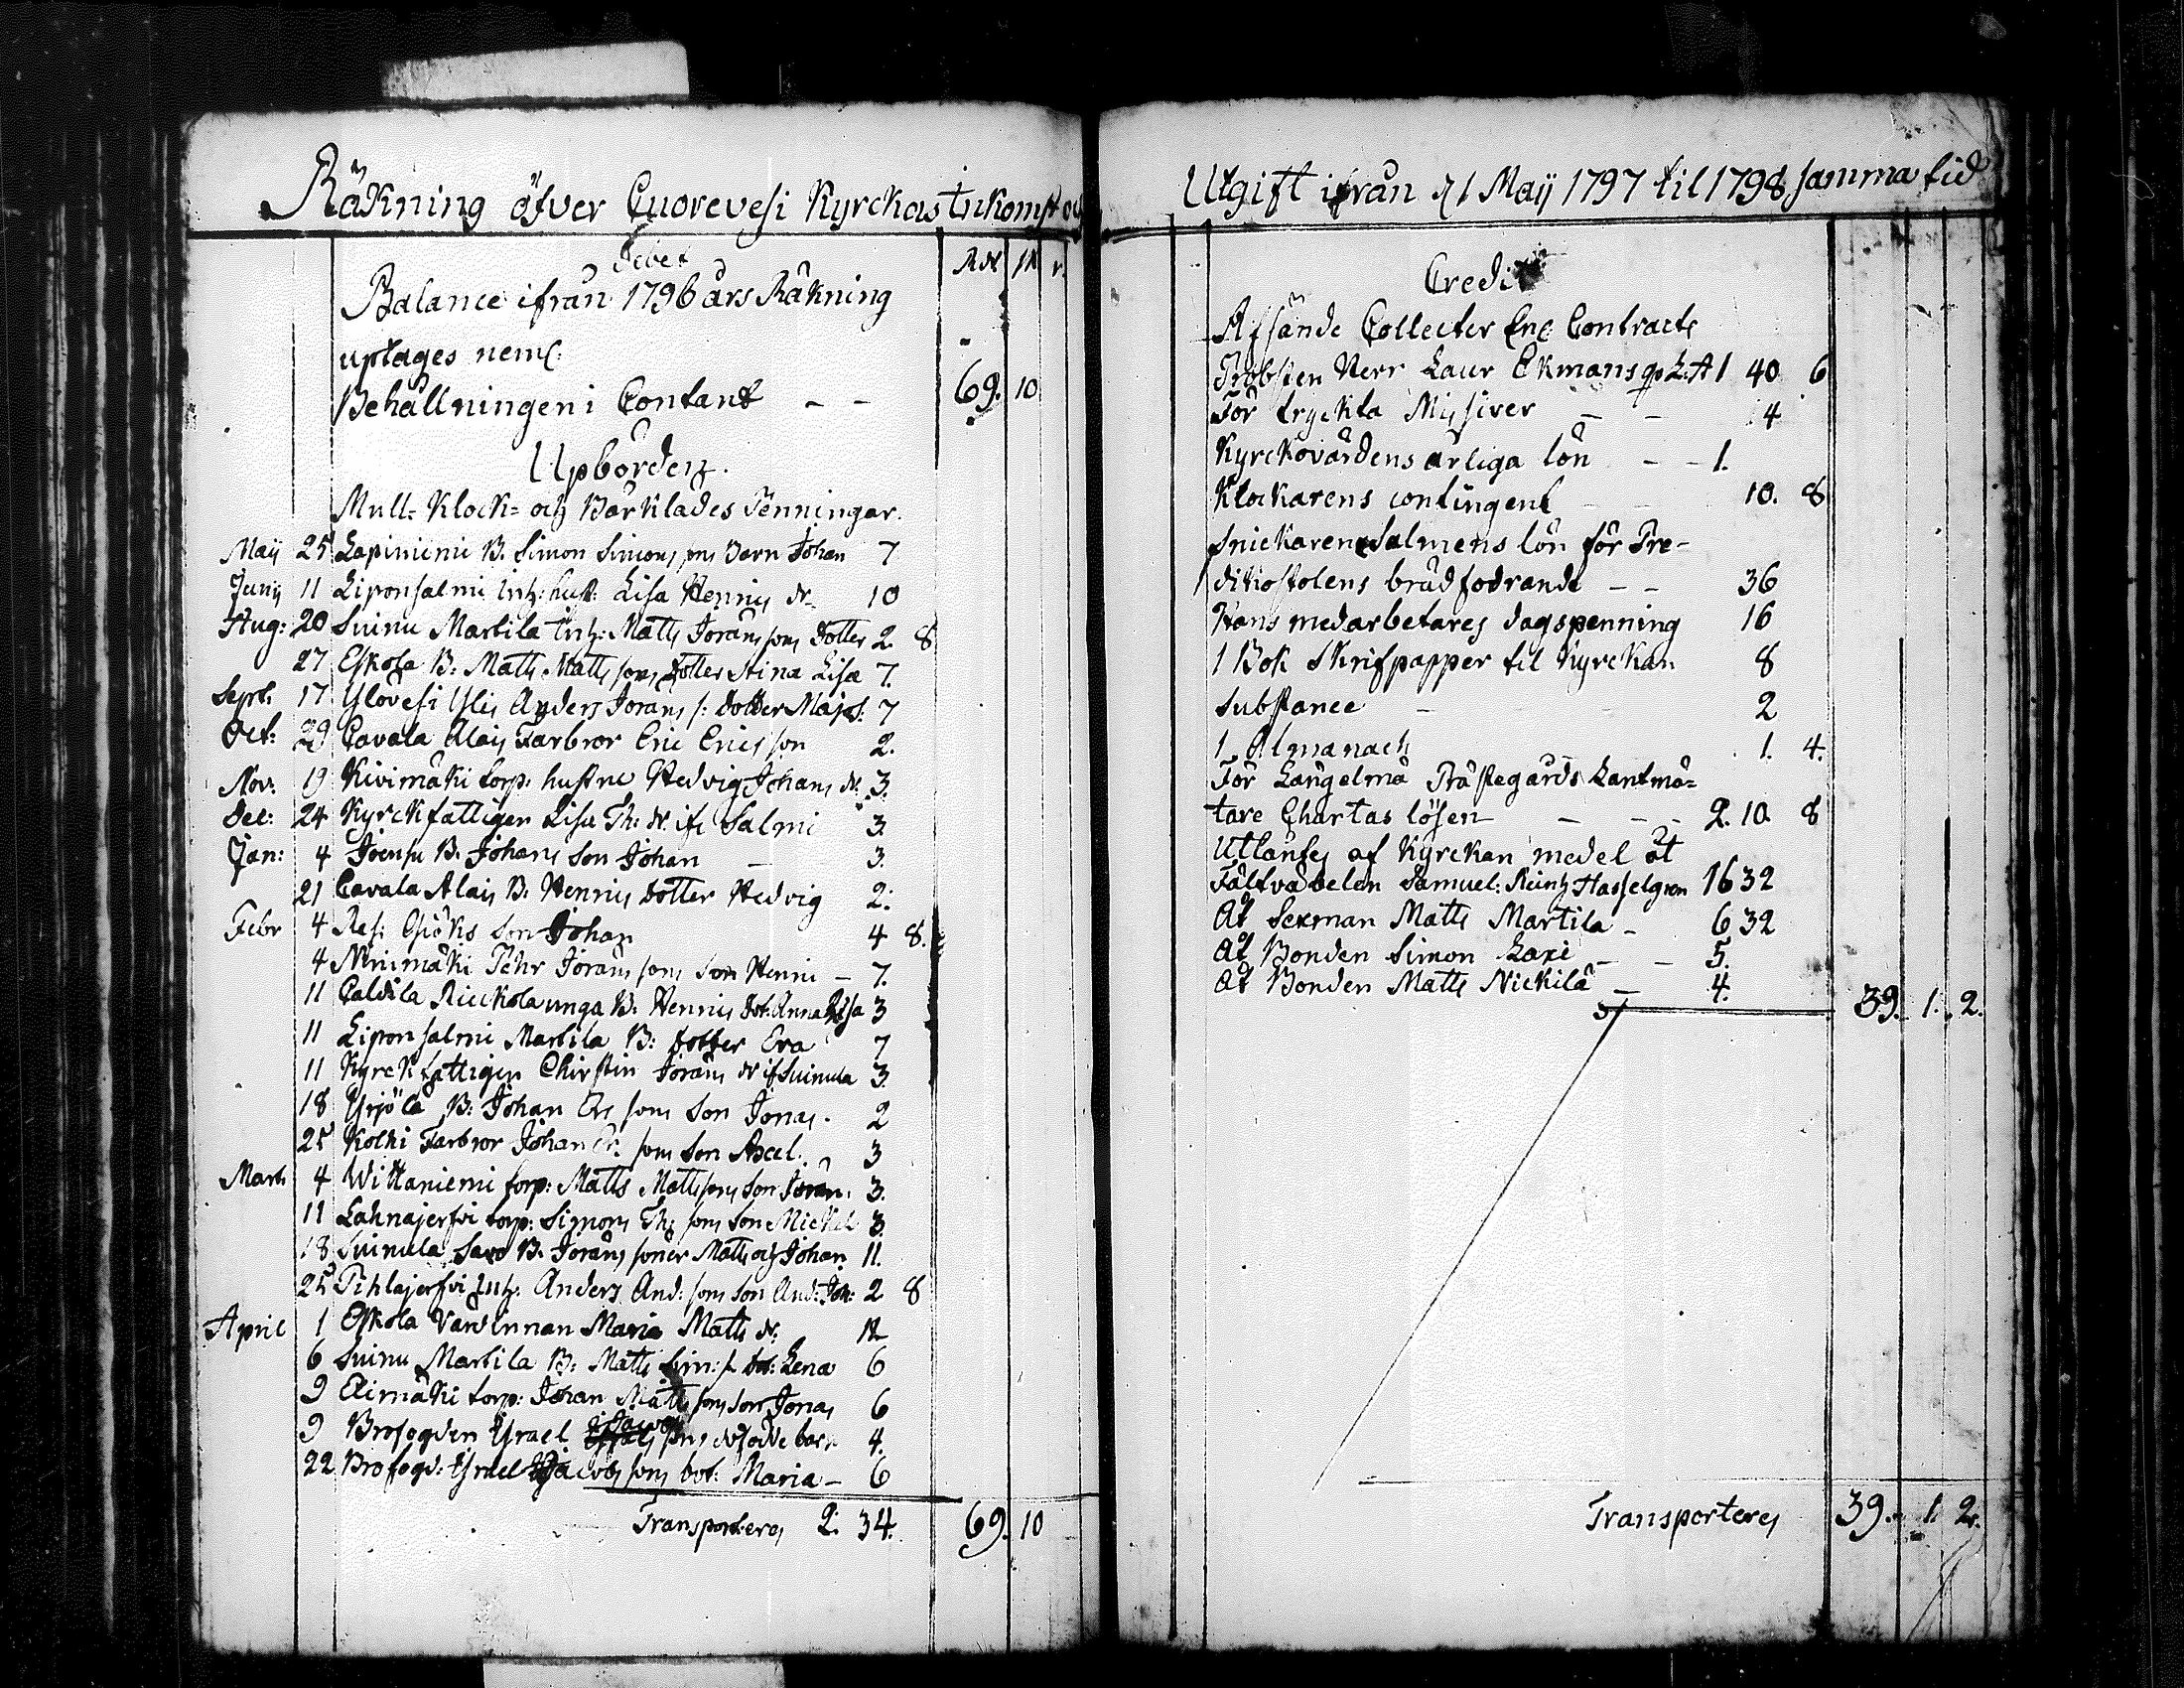 Räkning öfver Cuorevesi Kyrckas Inkomst och
Debet Rdr ſk r.
Balance ifrån 1796 års Räkning
uptages neml:
Behållningen i Contant – – 69. 10
Upbörden.
Mull- Klock- och Bårklädes Penningar.
Maij 25 Lapinniemi B. Simon Simonssons Barn Johan 7
Junij 11 Liponsalmi Inh: hust: Lisa Henrics dr 10
Aug: 20 Suinu Martila Inh: Matts Jöranssons dotter 2. 8
27 Eskola B: Matts Mattssons dotter Stina Lisa 7.
Sept: 17 Ylövesi Ylis Anders Jörans s: dotter Majs: 7
Oct: 29 Cavala Alais Farbror Eric Ericsson 2.
Nov: 19 Kivimäki torp: hustru Hedvig Johans dr. 3.
Dec: 24 Kyrckfattigen Lisa Th: dr. ifr Salmi 3.
Jan: 4 Joensu B. Johans Son Johan – 3.
21 Cavala Alais B: Henrics dotter Hedvig 2.
Febr 4 Res: Gjöks Son Johan 4 8.
4 Ninimäki Pehr Jöranssons Son Henric – 7.
11 Caldila Rieckola unga B. Henrics dot: Anna Lisa 3
11 Liponsalmi Martila B: dotter Eva 7
11 Kyrckfattigen Chirstin Jörans dr if Suinula 3.
18 Yrjölä B: Johan Ers sons Son Jonas. 2
25 Kolhi Farbror Johan Er: sons Son Axel. 3
Mart: 4 Wittaniemi torp: Matts Mattssons Son Jöran. 3.
11 Lahnajerfvi torp: Simons Ths sons Son Mickel 3.
18 Suinula Savo B. Jörans söner Matts och Johan 11.
25 Pihlajerfvi Inh: Anders And: sons Son And: Joh: 2 8
April 1 Eskola Värdinnan Maria Matts dr. 12
6 Suinu Martila B: Matts Sim: s. dot: Lena 6
9 Elimäki torp: Johan Mattssons Son Jonas 6
9 Brofogden Israel Jacobs sons dödfödde barn 4.
22 Brofogd: Israel Jacobssons dot: Maria – 6
Transporteras 2. 34. 69. 10
Utgift ifrån d 1 Maij 1797 til 1798 samma tid
Credit
Afsände Collecter Enl Contracts
Probsten Herr Laur Ekmans qv L: A 1 40 6
För tryckta Missiver – – 4
Kyrckovärdens årliga lön – – 1.
Klockarens contingent – – 10. 8
Snickaren Salmens lön för Pre-
dikostolens brädfodrande – – 36
Hans medarbetares dagspenning 16
1 Bok Skrifpapper til Kyrckan 8
Substance – 2
1 Almanach 1. 4.
För Längelmä Prästegårds Lantmä-
tare Chartas lösen – – – 2. 10. 8
Utlåntes af Kyrckan medel åt
Fältväbelen Samuel: Reinh Hasselgren 16 32
Åt Sexman Matts Martila – 6 32
Åt Bonden Simon Laxi – – 5.
Åt Bonden Matts Nickilä – 4.
39. 1. 2.
Transporteres 39. 1. 2.